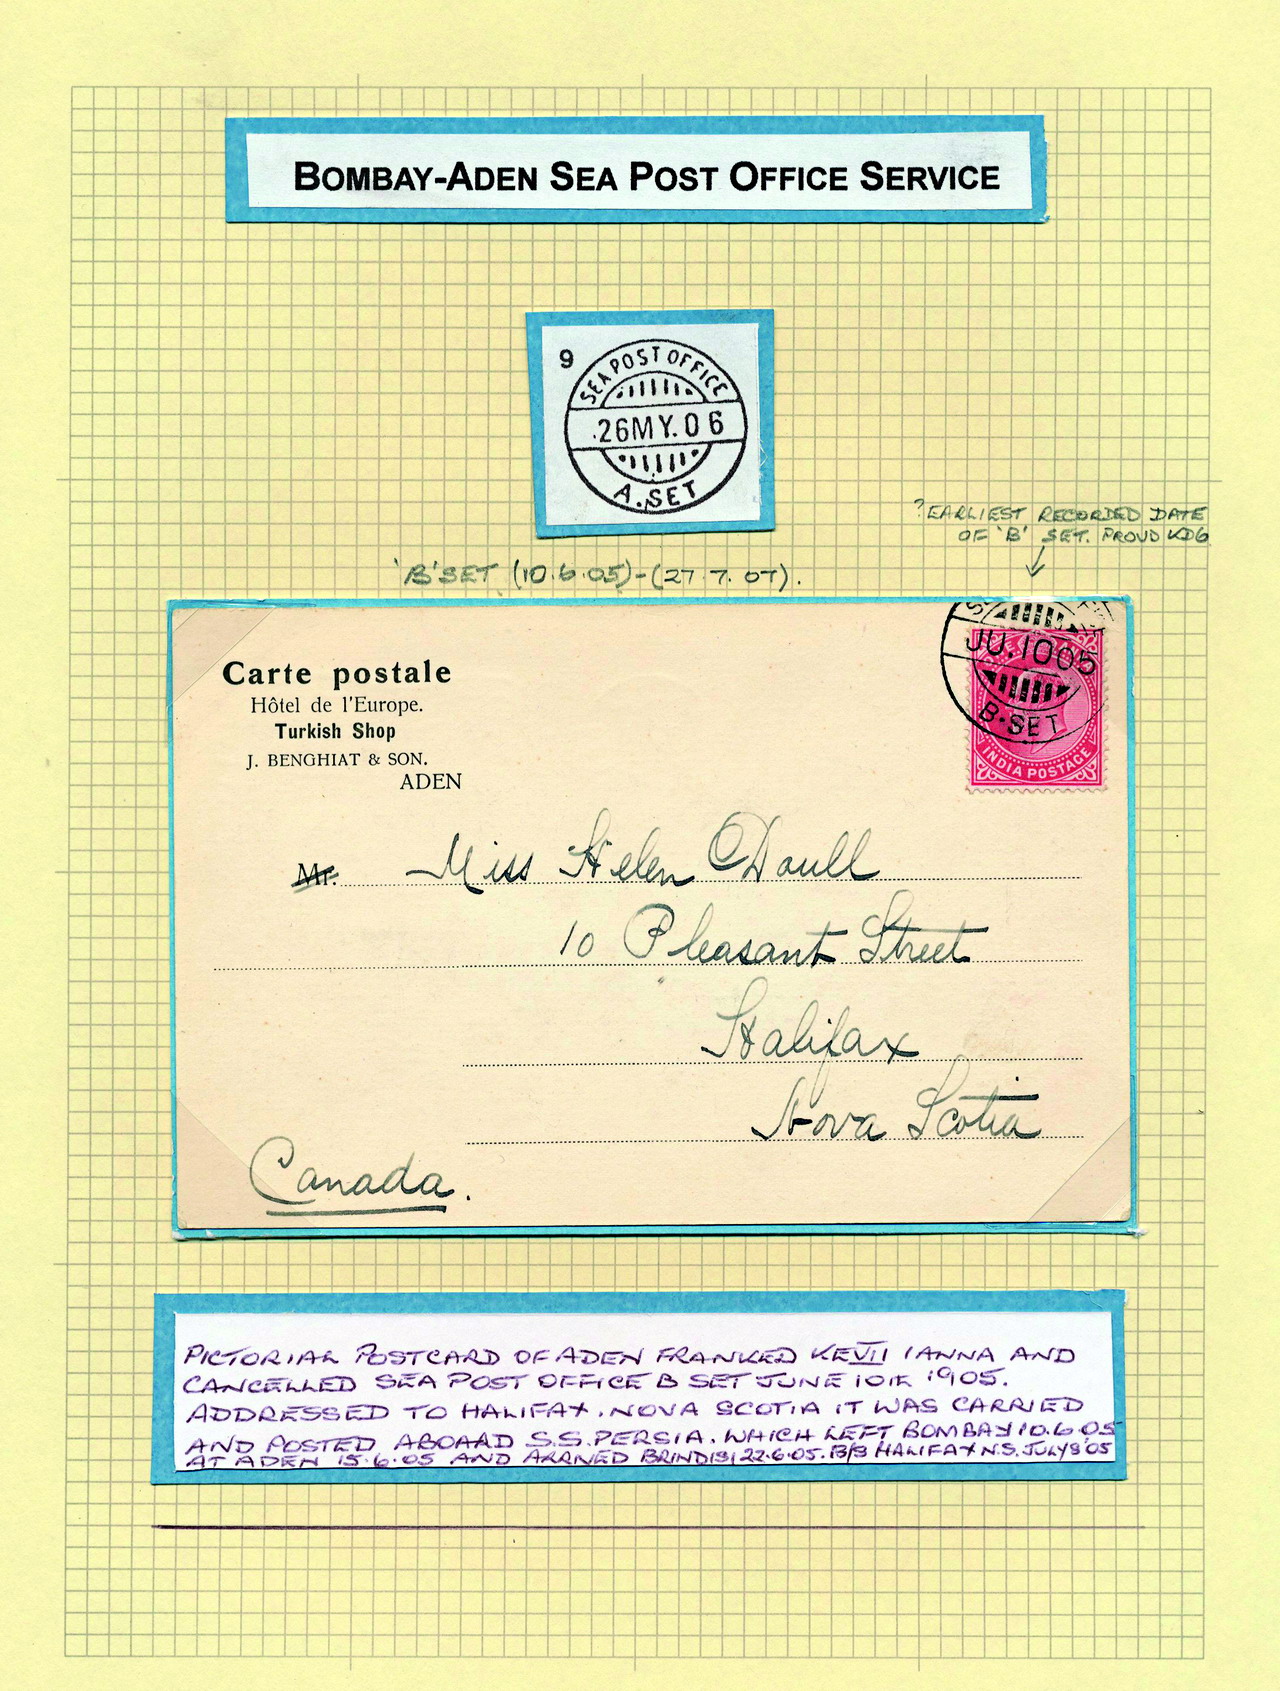 BOMBAY-ADEN SEA POST OFFICE SERVICE
9
SEA POST OFFICE
26MY.06
A.SET
?EARLIEST RECORDED DATE
OF 'B' SET. PROUD KD6
'B' SET (10.6.05)-(27.7.07).
JU.1005
B-SET
INDIA POSTAGE
Carte postale
Hôtel de l'Europe.
Turkish Shop
J. BENGHIAT & SON.
ADEN
Mr. Miss Helen Doull
10 Pleasant Street
Halifax
Nova Scotia
Canada.
PICTORIAL POSTCARD OF ADEN FRANKED KEVII 1 ANNA AND
CANCELLED SEA POST OFFICE B SET JUNE 10th 1905.
ADDRESSED TO HALIFAX. NOVA SCOTIA IT WAS CARRIED
AND POSTED ABOARD S.S. PERSIA. WHICH LEFT BOMBAY 10.6.05
AT ADEN 15.6.05 AND ARRIVED BRINDISI 22.6.05. B/S HALIFAX N.S. JULY 8 '05